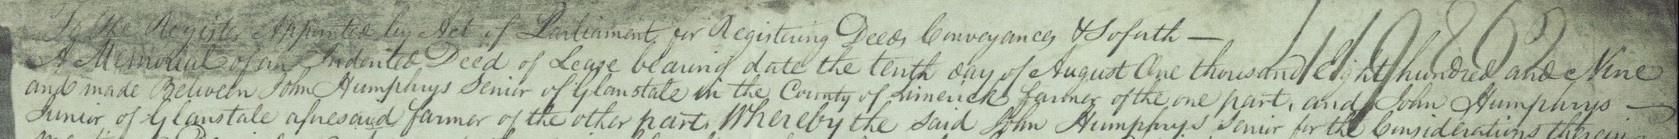 To the Register Appointed by Act of Parliament for Registering Deeds Conveyances & So forth —
A Memorial of an Indented Deed of Lease bearing date the tenth day of August One thousand Eight hundred and Nine
and made Between John Humphrys Senior of Glanstale in the County of Limerick farmer of the one part, and John Humphrys —
Junior of Glanstale aforesaid farmer of the other part. Whereby the said John Humphrys Senior for the Considerations therein